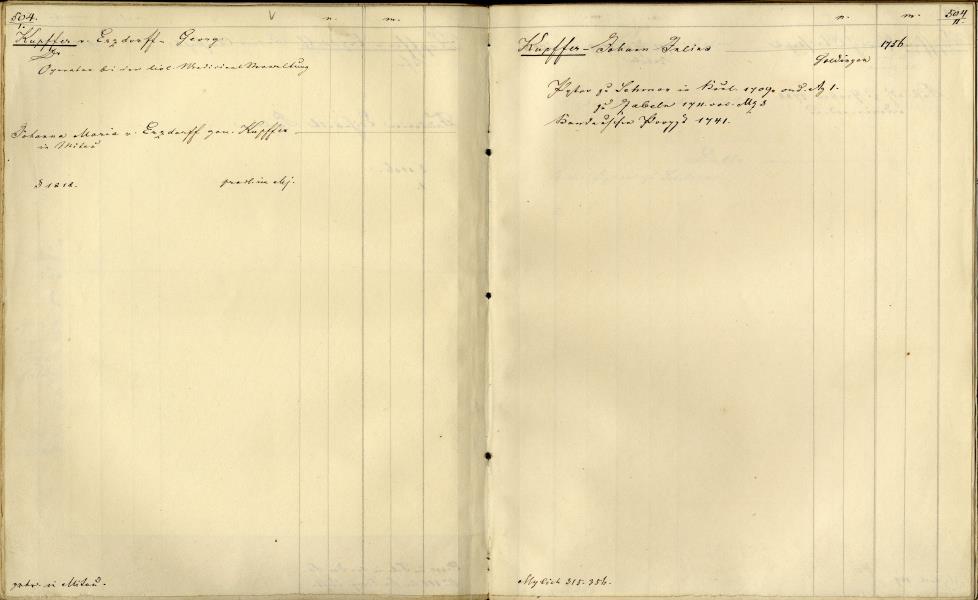 504.
I.
n. m.
Kupffer v. Erzdorff - Georg
Dr
Operateur bei der livl. Medicinal Verwaltung
Johanna Maria v. Erzdorff gen. Kupffer
in Mitau
§ 1212.
gebr. in Mitau.
n. m.
504
II.
Kupffer - Johann Julius 1756
Goldingen
Pastor zu Lesten in Kurl. 1709
zu Zabeln 1711
Kandauscher Propst 1741.
315. 356.